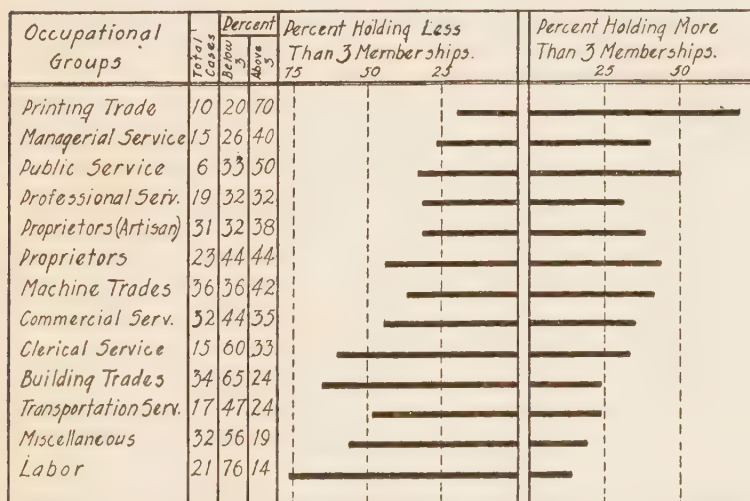 Occupational Groups Total Cases Percent Below 3 Above 3 Percent Holding Less Than 3 Memberships. Percent Holding More Than 3 Memberships.
75 50 25 25 50
Printing Trade 10 20 70
Managerial Service 15 26 40
Public Service 6 33 50
Professional Serv. 19 32 32
Proprietors (Artisan) 31 32 38
Proprietors 23 44 44
Machine Trades 36 36 42
Commercial Serv. 32 44 35
Clerical Service 15 60 33
Building Trades 34 65 24
Transportation Serv. 17 47 24
Miscellaneous 32 56 19
Labor 21 76 14